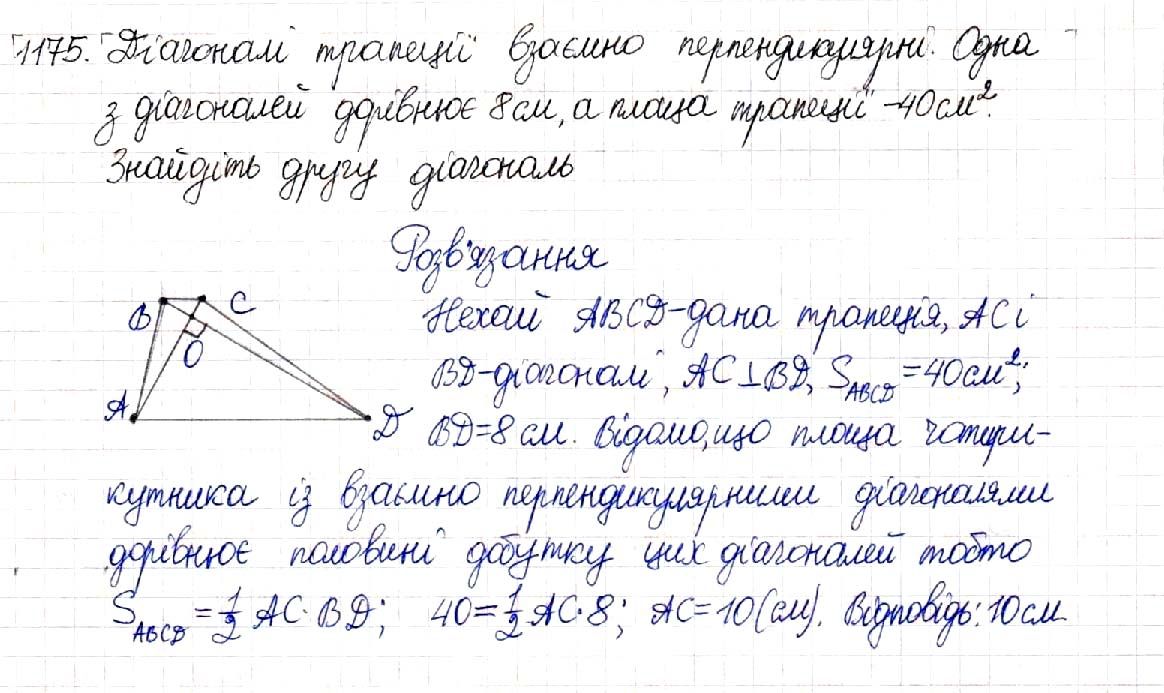 1175. Діагоналі трапеції взаємно перпендикулярні. Одна
з діагоналей дорівнює 8 см, а площа трапеції - 40 см².
Знайдіть другу діагональ
Розв'язання
B
C
O
A
D
Нехай ABCD - дана трапеція, AC і
BD - діагоналі, AC ⊥ BD, S_ABCD = 40 см²;
BD = 8 см. Відомо, що площа чотири-
кутника із взаємно перпендикулярними діагоналями
дорівнює половині добутку цих діагоналей тобто
S_ABCD = 1/2 AC · BD; 40 = 1/2 AC · 8; AC = 10 (см). Відповідь: 10 см